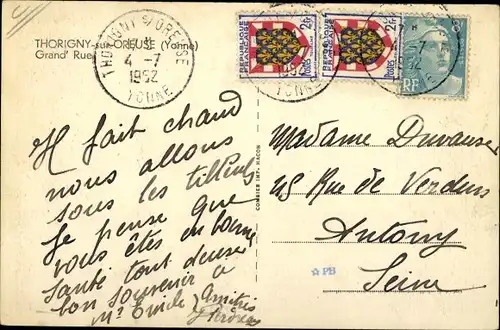 THORIGNY-sur-OREUSE (Yonne)
Grand' Rue
THORIGNY S/OREUSE
4 -7
1952
YONNE
REPUBLIQUE FRANÇAISE
REPUBLIQUE FRANÇAISE
RF
Il fait chaud
nous allons
sous les tilleuls
Je pense que
vous êtes en bonne
santé tout deux
bon souvenir à
Mr Emile Amitiés
COMBIER IMP. MACON
Madame Duvause
48 Rue de Verdun
Antony
Seine
☆ PB